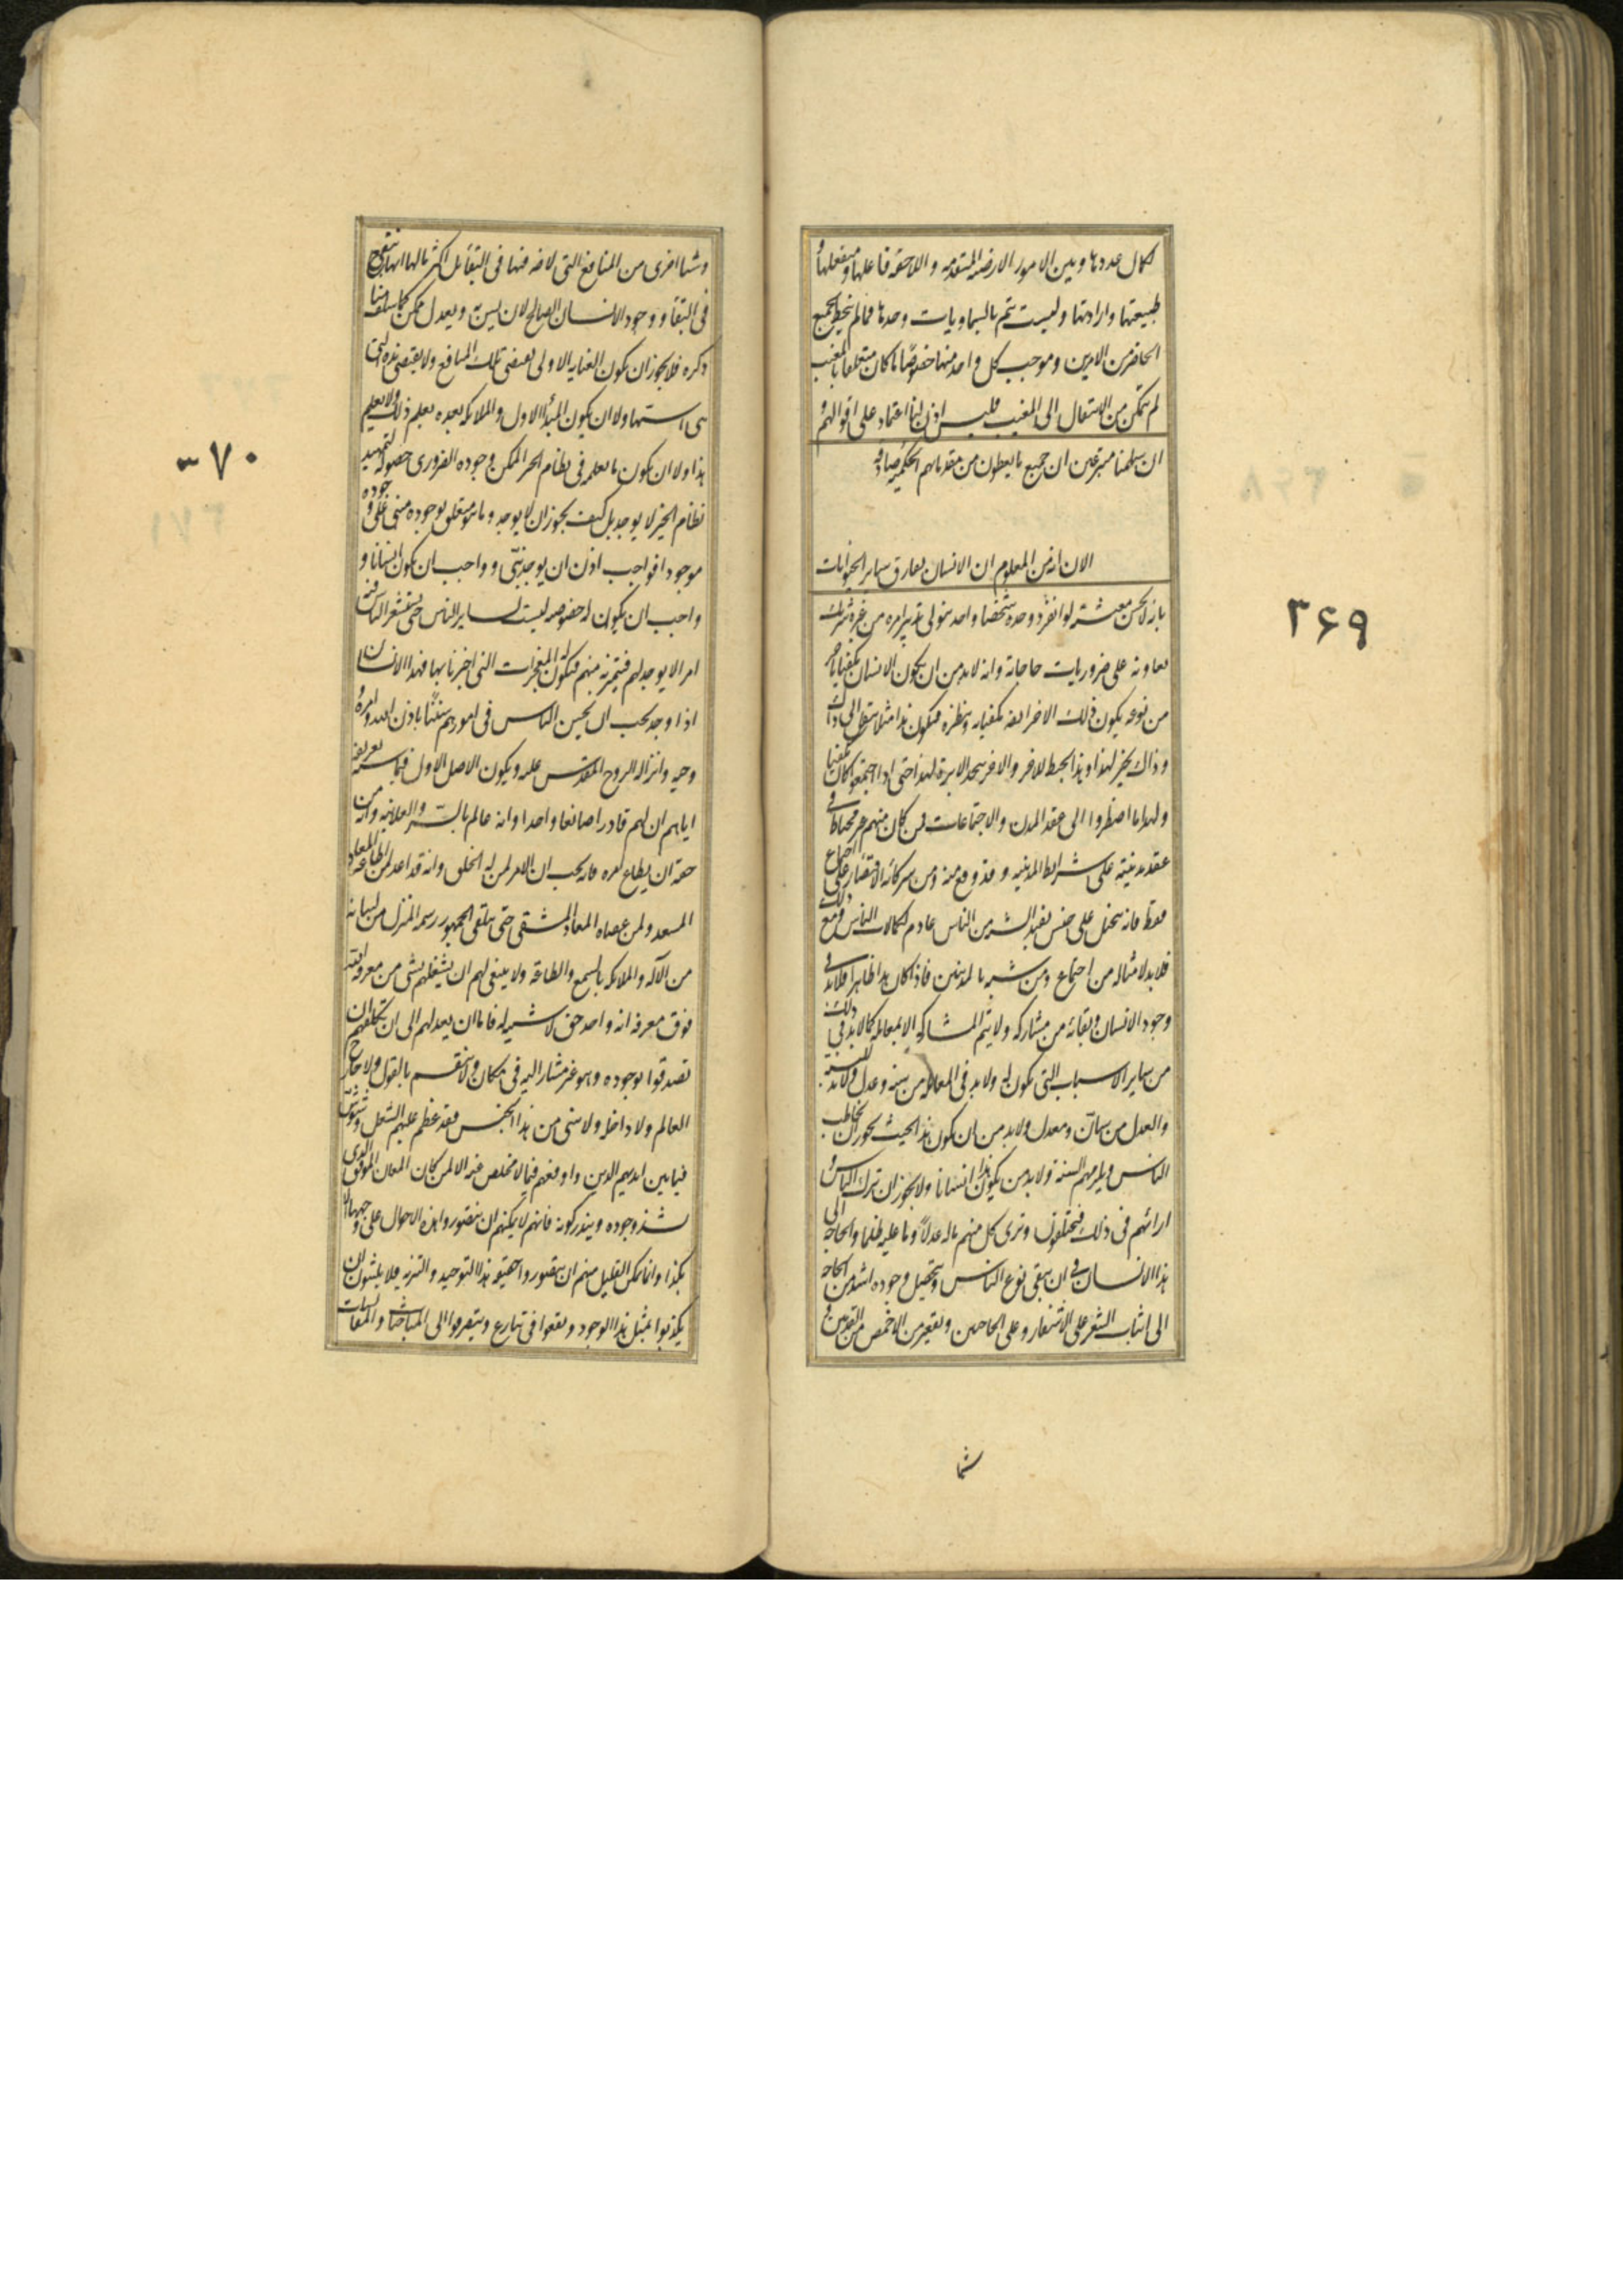 لكمال عددها وبين الامور الارضية المتقدمة واللاحقة فاعلها ومنفعلها
طبيعتها وارادتها وليست يتم بالسماويات وحدها فما لم يحط بجميع
الحاضر من الامرين وموجب كل واحد منها خصوصا ما كان متعلقا بالمغيب
لم يتمكن من الانتقال الى المغيب فليس اذن لنا اعتماد على اقوالهم و
ان سلمنا متبرعين ان جميع ما يعطون من مقدماتهم الحكمية صادقة
الان انه من المعلوم ان الانسان يفارق ساير الحيوانات
بانه لا يحسن معيشته لو انفرد وحده شخصا واحدا يتولى تدبير امره من غير شريك
يعاونه على ضروريات حاجاته وانه لابد من ان يكون الانسان مكفيا باخر
من نوعه يكون ذلك الاخر ايضا مكفيا به وبنظيره فيكون هذا مثلا ينقل الى ذاك
وذاك يخبز لهذا وهذا يخيط للاخر والاخر يتخذ الابرة لهذا حتى اذا اجتمعوا كان مكفيا
ولهذا ما اضطروا الى عقد المدن والاجتماعات فمن كان منهم غير محتاط في
عقد مدينته على شرايط المدينة وقد وقع منه ومن شركائه الاقتصار على اجتماع
فقط فانه يتحيل على جنس بعيد الشبه من الناس عادم لكمالات الناس ومع ذلك
فلابد لامثاله من اجتماع ومن تشبه بالمدنيين فاذا كان هذا ظاهرا فلابد في
وجود الانسان وبقائه من مشاركة ولا يتم المشاركة الا بمعاملة كما لابد في ذلك
من ساير الاسباب التي يكون له ولابد في المعاملة من سنة وعدل ولابد للسنة
والعدل من سان ومعدل ولابد من ان يكون هذا بحيث يجوز ان يخاطب
الناس ويلزمهم السنة ولابد من ان يكون هذا انسانا ولا يجوز ان يترك الناس و
ارائهم في ذلك فيختلفون ويرى كل منهم ما له عدلا وما عليه ظلما والحاجة الى
هذا الانسان في ان يبقى نوع الناس ويتحصل وجوده اشد من الحاجة
الى انبات الشعر على الاشفار وعلى الحاجبين وتقعير من الاخمص من القدمين و
شيا
۳۶۹
وشيا اخرى من المنافع التي لا ضرورة فيها في البقا بل اكثر ما لها انها ينفع
في البقا ووجود الانسان الصالح لان يسن ويعدل ممكن كما سلف منا
ذكره فلا يجوز ان يكون العناية الاولى يقتضي تلك المنافع ولا يقتضي هذه التي
هي اسها ولا ان يكون المبدأ الاول والملائكة بعده يعلم ذلك ولا يعلم
هذا ولا ان يكون ما يعلمه في نظام الخير الممكن وجوده الضروري حصوله لتمهيد
نظام الخير لا يوجد بل كيف يجوز ان لا يوجد وما هو متعلق بوجوده مبني على وجوده
موجود فواجب اذن ان يوجد نبي وواجب ان يكون انسانا و
واجب ان يكون له خصوصية ليست لساير الناس حتى يستشعر الناس فيه
امرا لا يوجد لهم فيتميز به منهم فيكون له المعجزات التي اخبرنا بها فهذا الانسان
اذا وجد يجب ان يسن للناس في امورهم سننا باذن الله وامره و
وحيه وانزاله الروح المقدس عليه ويكون الاصل الاول فيما يسنه تعريفه
اياهم ان لهم صانعا واحدا قادرا وانه عالم بالسر والعلانية وانه من
حقه ان يطاع امره فانه يجب ان الامر لمن له الخلق وانه قد اعد لمن اطاعه المعاد
المسعد ولمن عصاه المعاد المشقي حتى يتلقى الجمهور رسمه المنزل من لسانه
من الاله والملائكة بالسمع والطاعة ولا ينبغي لهم ان يشغلهم بشي من معرفة الله
فوق معرفة انه واحد حق لا شبيه له فاما ان يعدلهم الى ان يكلفهم ان
يصدقوا بوجوده وهو غير مشار اليه في مكان ولا منقسم بالقول ولا خارج
العالم ولا داخله ولا شي من هذا الجنس فقد عظم عليهم الشغل وشوش
فيما بين ايديهم الدين واوقعهم فيما لا مخلص عنه الا لمن كان المعان الموفق الذي
يشذ وجوده ويندر كونه فانهم لا يمكنهم ان يتصوروا هذه الاحوال على وجهها الا
بكدا وانما يمكن القليل منهم ان يتصوروا حقيقة هذا التوحيد والتنزيه فلا يلبثون ان
يكذبوا بمثل هذا الوجود ويقعوا في تنازع وينصرفوا الى المباحثات والمقايسات